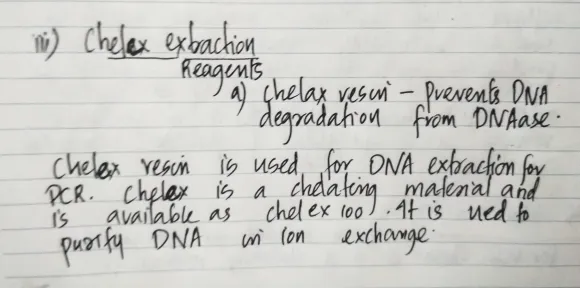 iii) Chelex extraction
Reagents
a) Chelax resin - Prevents DNA
degradation from DNAase.
Chelex resin is used for DNA extraction for
PCR. Chelex is a chelating material and
is available as chelex 100). It is ued to
purify DNA in ion exchange.